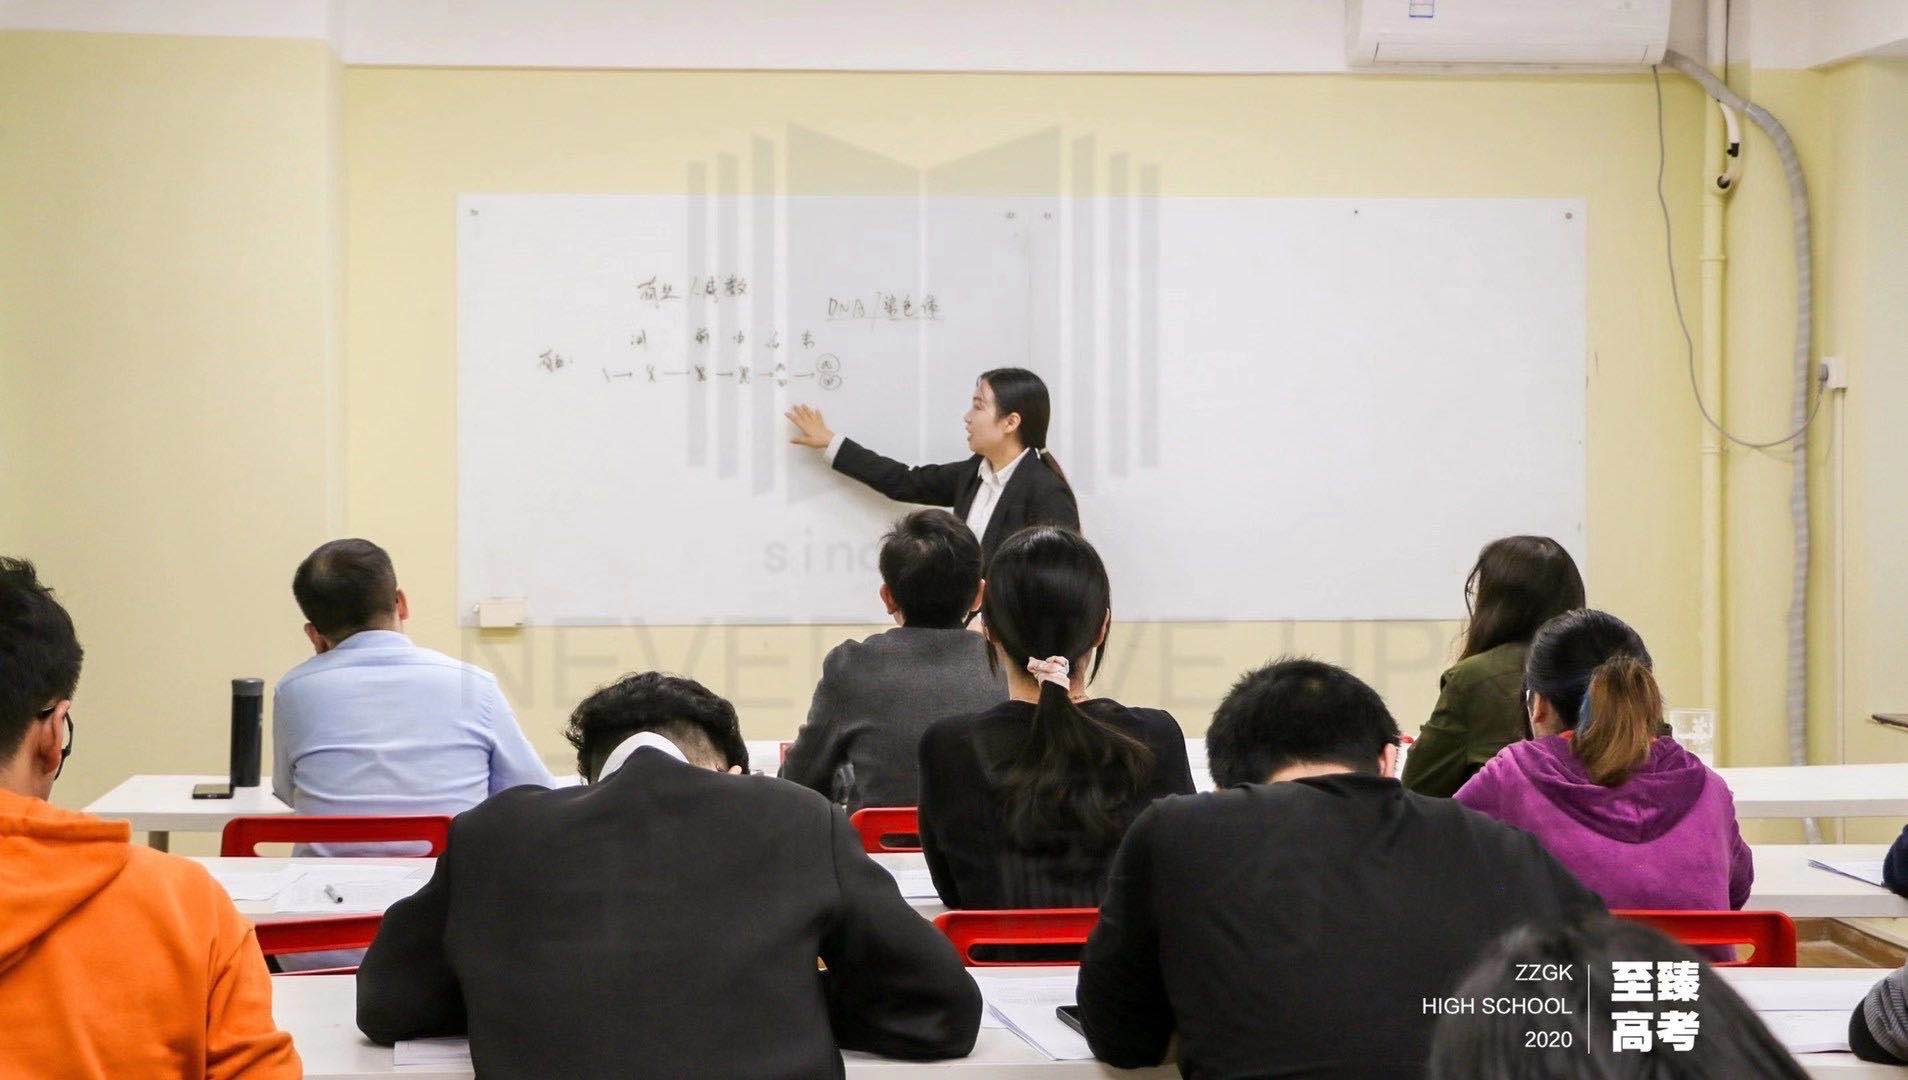 有丝/减数
DNA/染色体
间 前 中 后 末
有丝:
sinc
NEVER GIVE UP
ZZGK
HIGH SCHOOL
2020
至臻
高考